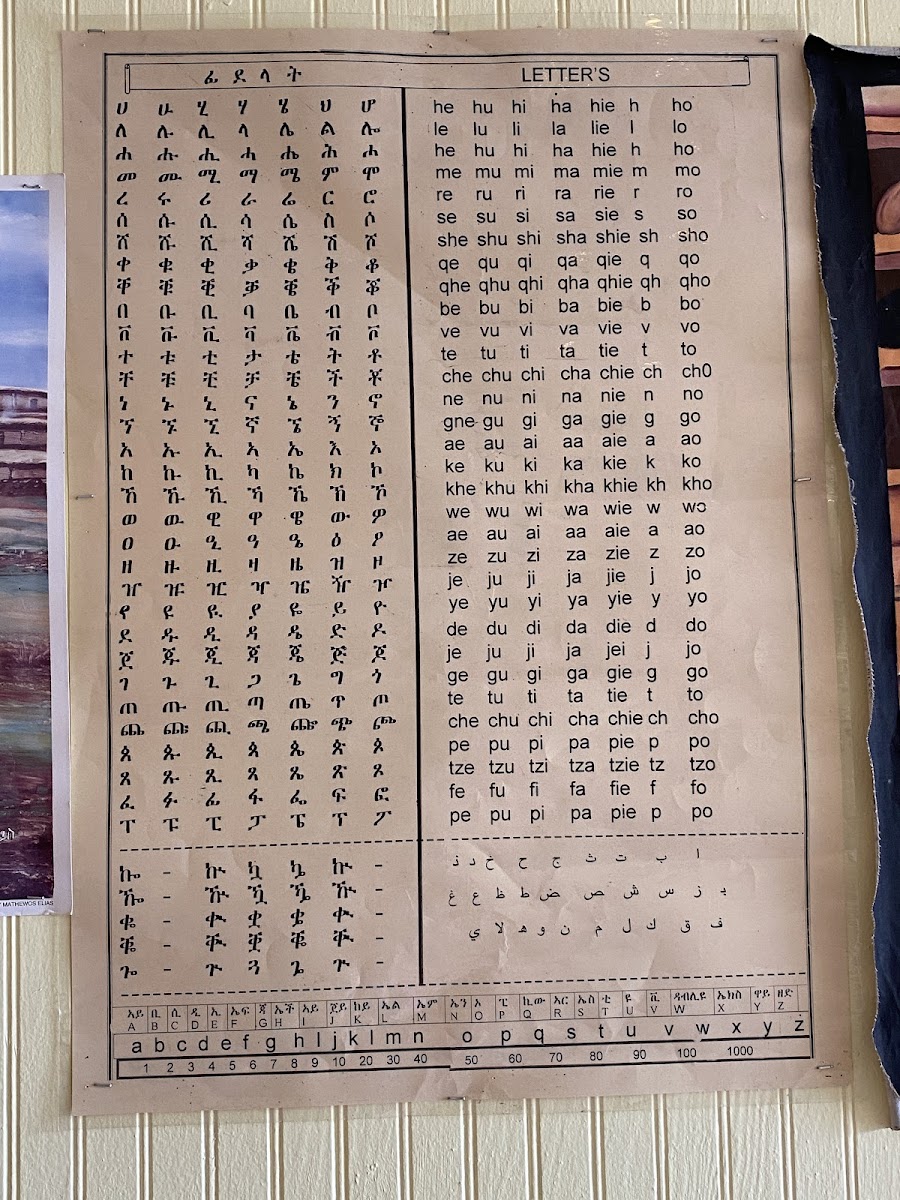 ፊ ደ ላ ት LETTER'S
ሀ ሁ ሂ ሃ ሄ ህ ሆ he hu hi ha hie h ho
ለ ሉ ሊ ላ ሌ ል ሎ le lu li la lie l lo
ሐ ሑ ሒ ሓ ሔ ሕ ሖ he hu hi ha hie h ho
መ ሙ ሚ ማ ሜ ም ሞ me mu mi ma mie m mo
ረ ሩ ሪ ራ ሬ ር ሮ re ru ri ra rie r ro
ሰ ሱ ሲ ሳ ሴ ስ ሶ se su si sa sie s so
ሸ ሹ ሺ ሻ ሼ ሽ ሾ she shu shi sha shie sh sho
ቀ ቁ ቂ ቃ ቄ ቅ ቆ qe qu qi qa qie q qo
ቐ ቑ ቒ ቓ ቔ ቕ ቖ qhe qhu qhi qha qhie qh qho
በ ቡ ቢ ባ ቤ ብ ቦ be bu bi ba bie b bo
ቨ ቩ ቪ ቫ ቬ ቭ ቮ ve vu vi va vie v vo
ተ ቱ ቲ ታ ቴ ት ቶ te tu ti ta tie t to
ቸ ቹ ቺ ቻ ቼ ች ቾ che chu chi cha chie ch ch0
ነ ኑ ኒ ና ኔ ን ኖ ne nu ni na nie n no
ኘ ኙ ኚ ኛ ኜ ኝ ኞ gne gu gi ga gie g go
አ ኡ ኢ ኣ ኤ እ ኦ ae au ai aa aie a ao
ከ ኩ ኪ ካ ኬ ክ ኮ ke ku ki ka kie k ko
ኸ ኹ ኺ ኻ ኼ ኽ ኾ khe khu khi kha khie kh kho
ወ ዉ ዊ ዋ ዌ ው ዎ we wu wi wa wie w wo
ዐ ዑ ዒ ዓ ዔ ዕ ዖ ae au ai aa aie a ao
ዘ ዙ ዚ ዛ ዜ ዝ ዞ ze zu zi za zie z zo
ዠ ዡ ዢ ዣ ዤ ዥ ዦ je ju ji ja jie j jo
የ ዩ ዪ ያ ዬ ይ ዮ ye yu yi ya yie y yo
ደ ዱ ዲ ዳ ዴ ድ ዶ de du di da die d do
ጀ ጁ ጂ ጃ ጄ ጅ ጆ je ju ji ja jei j jo
ገ ጉ ጊ ጋ ጌ ግ ጎ ge gu gi ga gie g go
ጠ ጡ ጢ ጣ ጤ ጥ ጦ te tu ti ta tie t to
ጨ ጩ ጪ ጫ ጬ ጭ ጮ che chu chi cha chie ch cho
ጰ ጱ ጲ ጳ ጴ ጵ ጶ pe pu pi pa pie p po
ጸ ጹ ጺ ጻ ጼ ጽ ጾ tze tzu tzi tza tzie tz tzo
ፈ ፉ ፊ ፋ ፌ ፍ ፎ fe fu fi fa fie f fo
ፐ ፑ ፒ ፓ ፔ ፕ ፖ pe pu pi pa pie p po
ኰ - ኲ ኳ ኴ ኵ -
ዀ - ዂ ዃ ዄ ዅ -
ቈ - ቊ ቋ ቌ ቍ -
ቘ - ቚ ቛ ቜ ቝ -
ጐ - ጒ ጓ ጔ ጕ -
ا ب ت ث ج ح خ د ذ
ر ز س ش ص ض ط ظ ع غ
ف ق ك ل م ن و ه لا ي
ኤይ ቢ ሲ ዲ ኢ ኤፍ ጂ ኤች አይ ጀይ ከይ ኤል ኤም ኤን ኦ ፒ ኪው ኣር ኤስ ቲ ዩ ቪ ዳብሊዩ ኤክስ ዋይ ዘድ
A B C D E F G H I J K L M N O P Q R S T U V W X Y Z
a b c d e f g h I j k l m n o p q s t u v w x y z
1 2 3 4 5 6 7 8 9 10 20 30 40 50 60 70 80 90 100 1000
MATHEWOS ELIAS